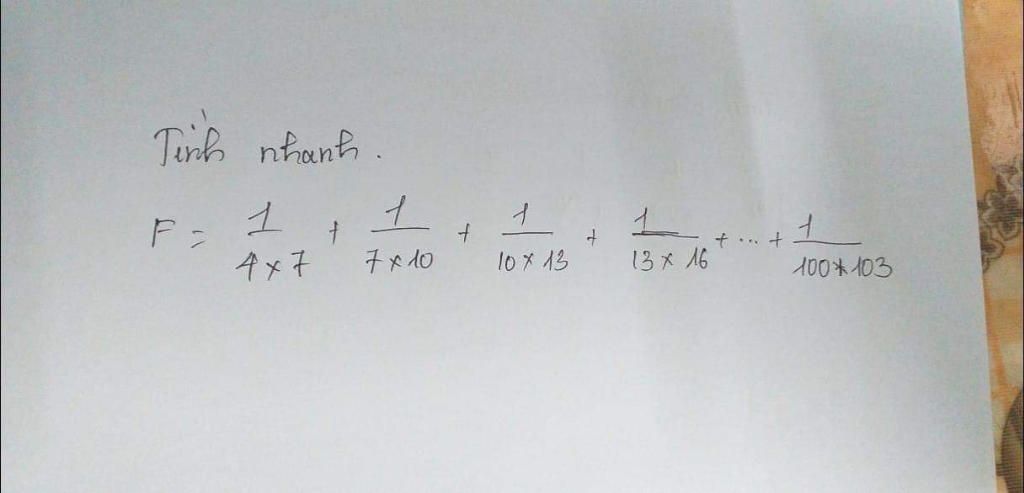 Tính nhanh.
F = 1/(4 x 7) + 1/(7 x 10) + 1/(10 x 13) + 1/(13 x 16) + ... + 1/(100 x 103)